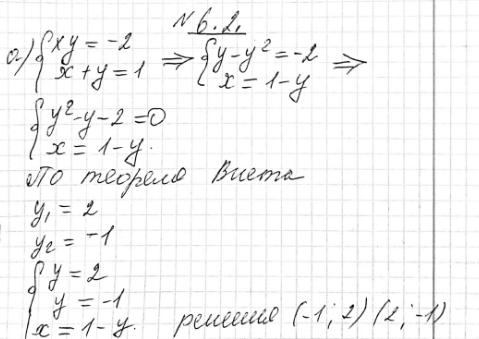 № 6.2.
а) { xy = -2 ⇒ { y - y² = -2 ⇒
x + y = 1 x = 1 - y
{ y² - y - 2 = 0
x = 1 - y.
По теорема Виета
y₁ = 2
y₂ = -1
{ y = 2
y = -1
x = 1 - y. решения (-1; 2) (2; -1)